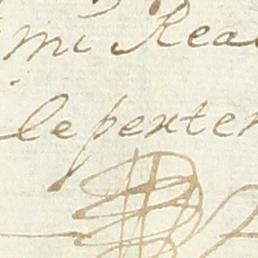 mi Rea
le perten